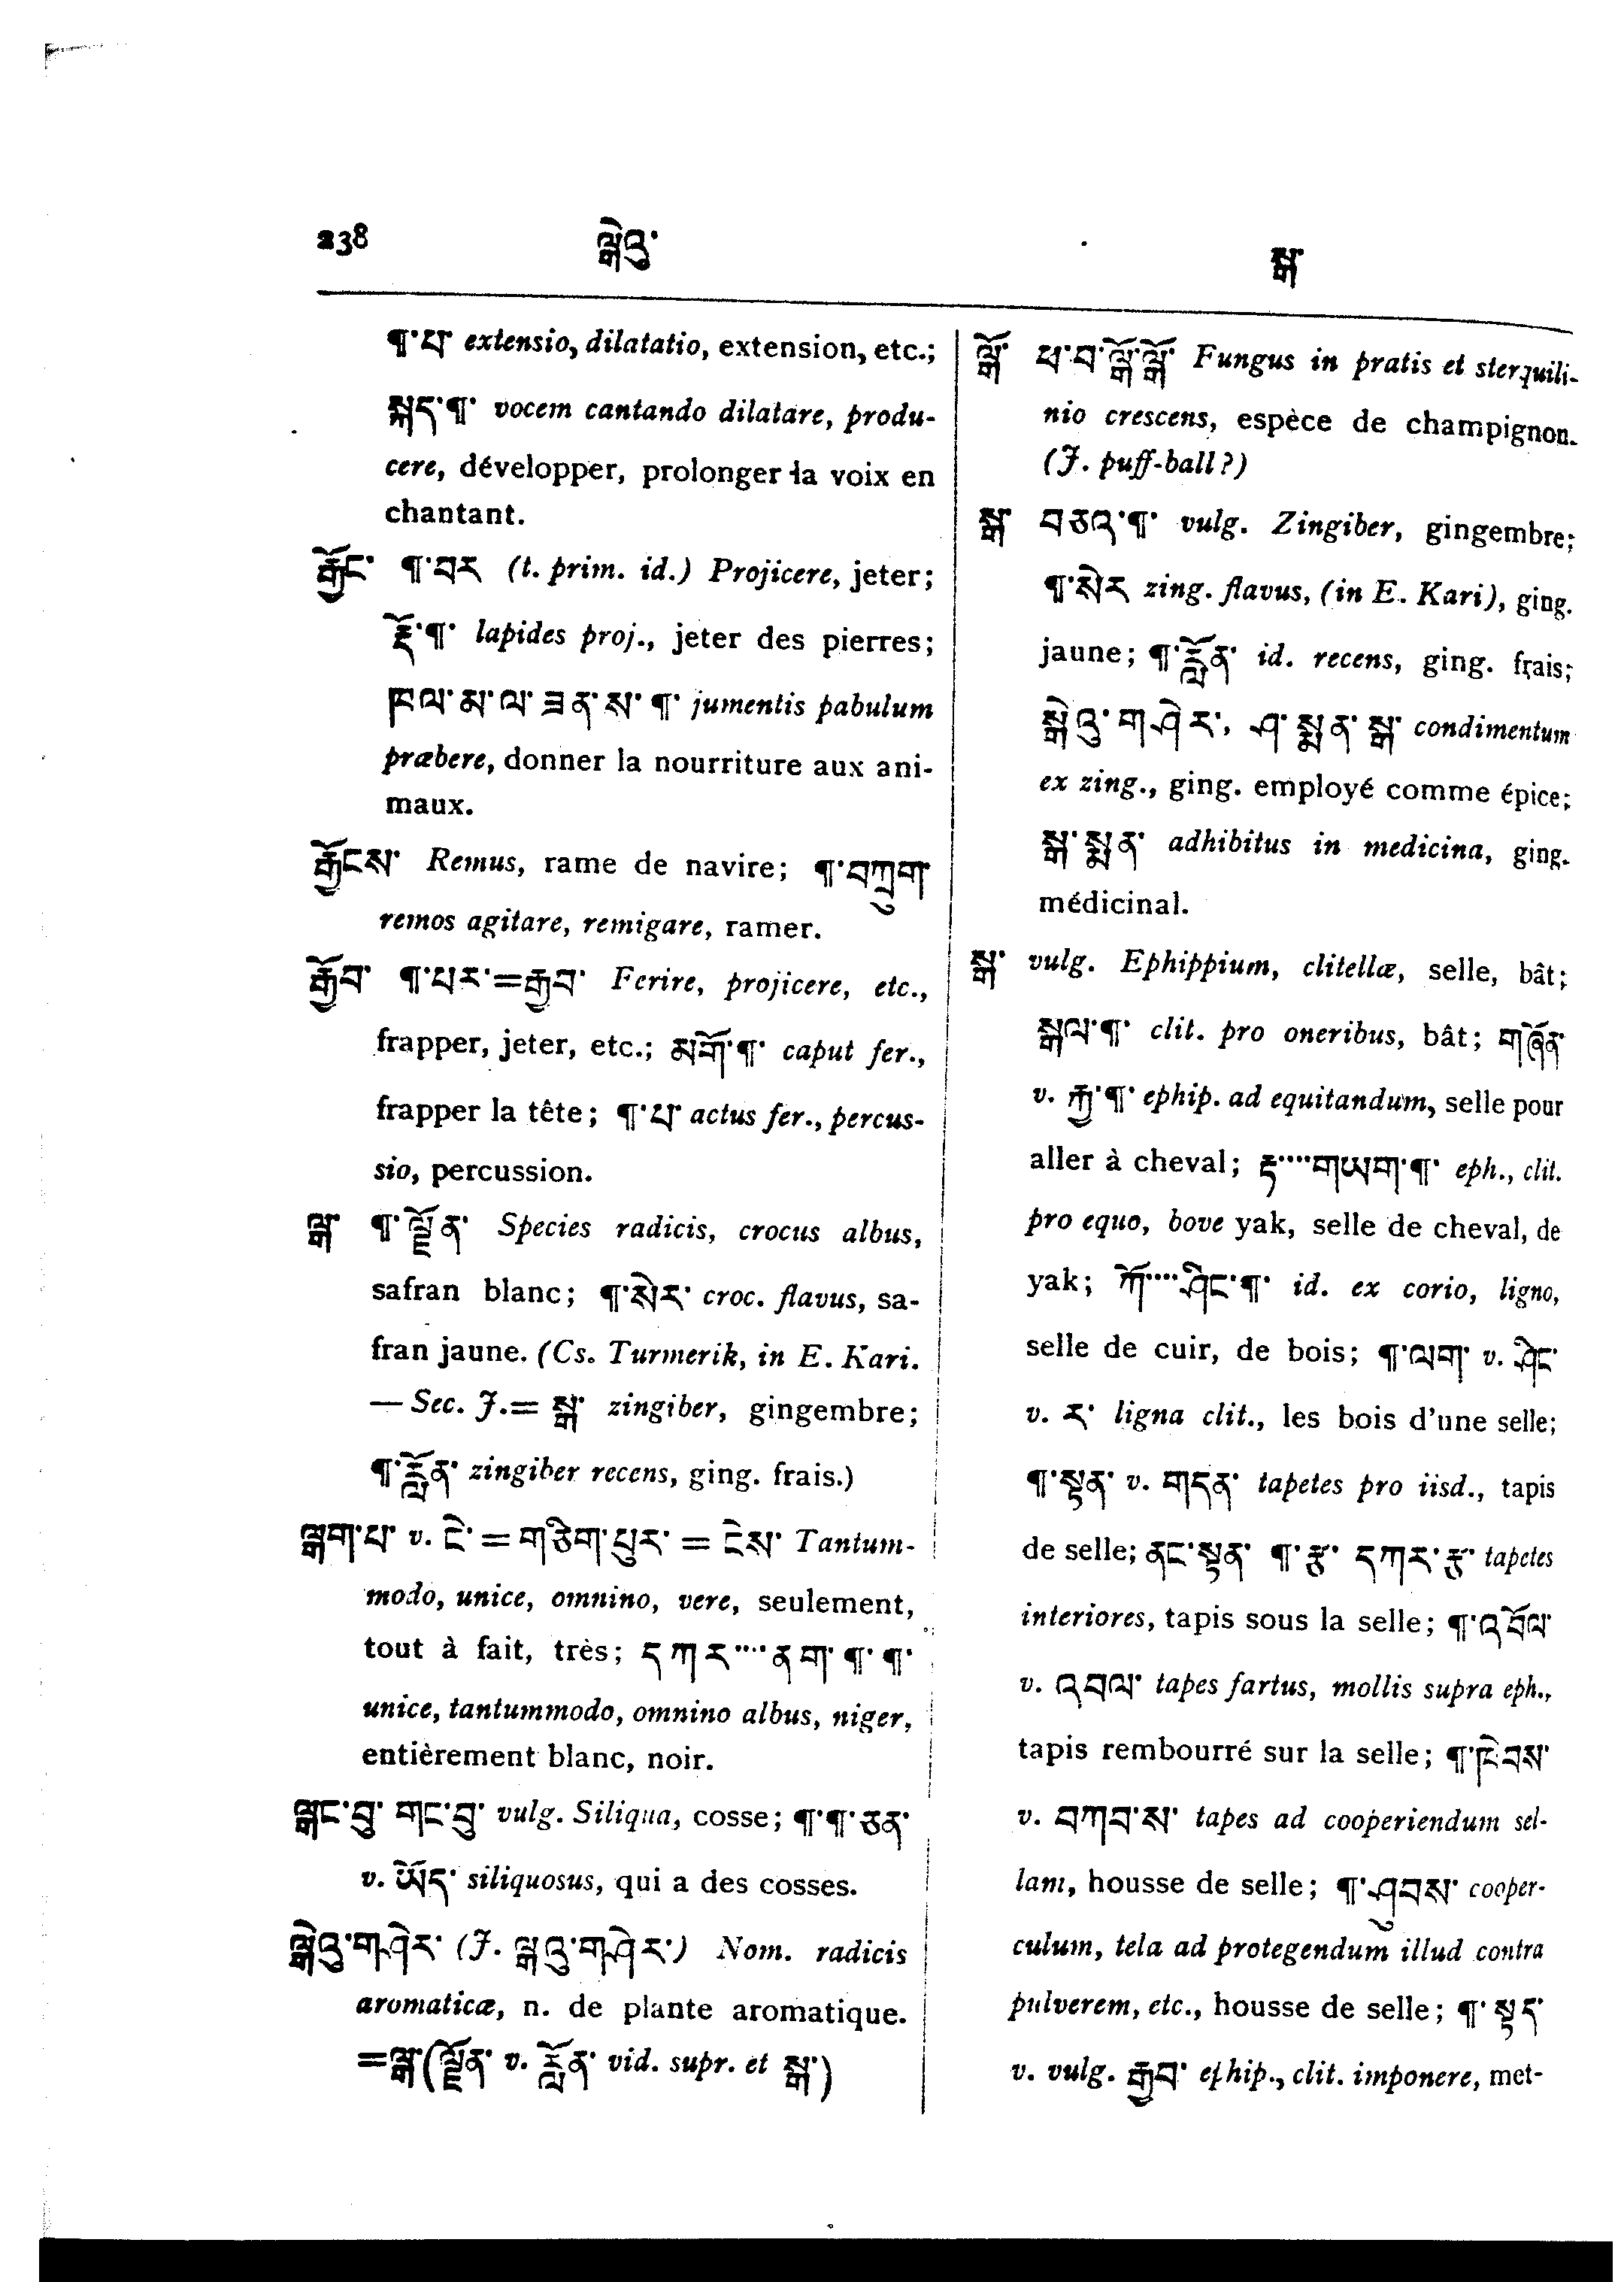 238 ལྒེའུ་ སྒ་
¶་པ་ extensio, dilatatio, extension, etc.;
སྐད་¶་ vocem cantando dilatare, produ-
cere, développer, prolonger la voix en
chantant.
རྒྱོང་ ¶་བར (t. prim. id.) Projicere, jeter;
རྡོ་¶་ lapides proj., jeter des pierres;
ཁལ་མ་ལ་ཟན་ས་¶་ jumentis pabulum
præbere, donner la nourriture aux ani-
maux.
རྒྱོངས་ Remus, rame de navire; ¶་བཀྲུག་
remos agitare, remigare, ramer.
རྒྱོབ་ ¶་པར་=རྒྱབ་ Ferire, projicere, etc.,
frapper, jeter, etc.; མགོ་¶་ caput fer.,
frapper la tête; ¶་པ་ actus fer., percus-
sio, percussion.
ལྒ་ ¶་ལྗོན་ Species radicis, crocus albus,
safran blanc; ¶་སེར་ croc. flavus, sa-
fran jaune. (Cs. Turmerik, in E. Kari.
— Sec. J.= སྒ་ zingiber, gingembre;
¶་རློན་ zingiber recens, ging. frais.)
ལྒག་པ་ v. ངེ་ = གཅིག་པུར་ = ངེས་ Tantum-
modo, unice, omnino, vere, seulement,
tout à fait, très; དཀར་···ནག་¶་¶་
unice, tantummodo, omnino albus, niger,
entièrement blanc, noir.
ལྒང་བུ་ གང་བུ་ vulg. Siliqua, cosse; ¶་¶་ཅན་
v. ཡོད་ siliquosus, qui a des cosses.
ལྒེའུ་གཤེར་ (J. ལྒའུ་གཤེར་) Nom. radicis
aromaticæ, n. de plante aromatique.
=ལྒ་(ལྗོན་ v. རློན་ vid. supr. et སྒ་)
ལྒོ་ ཕ་བ་ལྒོ་ལྒོ་ Fungus in pratis et sterquili-
nio crescens, espèce de champignon.
(J. puff-ball?)
སྒ་ བཅའ་¶་ vulg. Zingiber, gingembre;
¶་སེར zing. flavus, (in E. Kari), ging.
jaune; ¶་རློན་ id. recens, ging. frais;
སྒེའུ་གཤེར་, ཤ་སྨན་སྒ་ condimentum
ex zing., ging. employé comme épice;
སྒ་སྨན་ adhibitus in medicina, ging.
médicinal.
སྒ་ vulg. Ephippium, clitellæ, selle, bât;
སྒལ་¶་ clit. pro oneribus, bât; གཞོན་
v. རྐྱ་¶་ ephip. ad equitandum, selle pour
aller à cheval; རྟ་···གཡག་¶་ eph., clit.
pro equo, bove yak, selle de cheval, de
yak; ཀོ་···ཤིང་¶་ id. ex corio, ligno,
selle de cuir, de bois; ¶་ལག་ v. ཤིང་
v. ར་ ligna clit., les bois d'une selle;
¶་སྟན་ v. གདན་ tapetes pro iisd., tapis
de selle; ནང་སྟན་ ¶་རྩ་ དཀར་རྩ་ tapetes
interiores, tapis sous la selle; ¶་འབོལ་
v. འབལ་ tapes fartus, mollis supra eph.,
tapis rembourré sur la selle; ¶་ཁེབས་
v. བཀབ་ས་ tapes ad cooperiendum sel-
lam, housse de selle; ¶་ཤུབས་ cooper-
culum, tela ad protegendum illud contra
pulverem, etc., housse de selle; ¶་སྟད་
v. vulg. རྒྱབ་ ephip., clit. imponere, met-